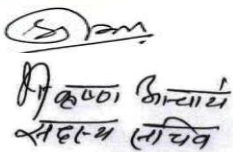 श्री कृष्णा आचार्य
सदस्य सचिव